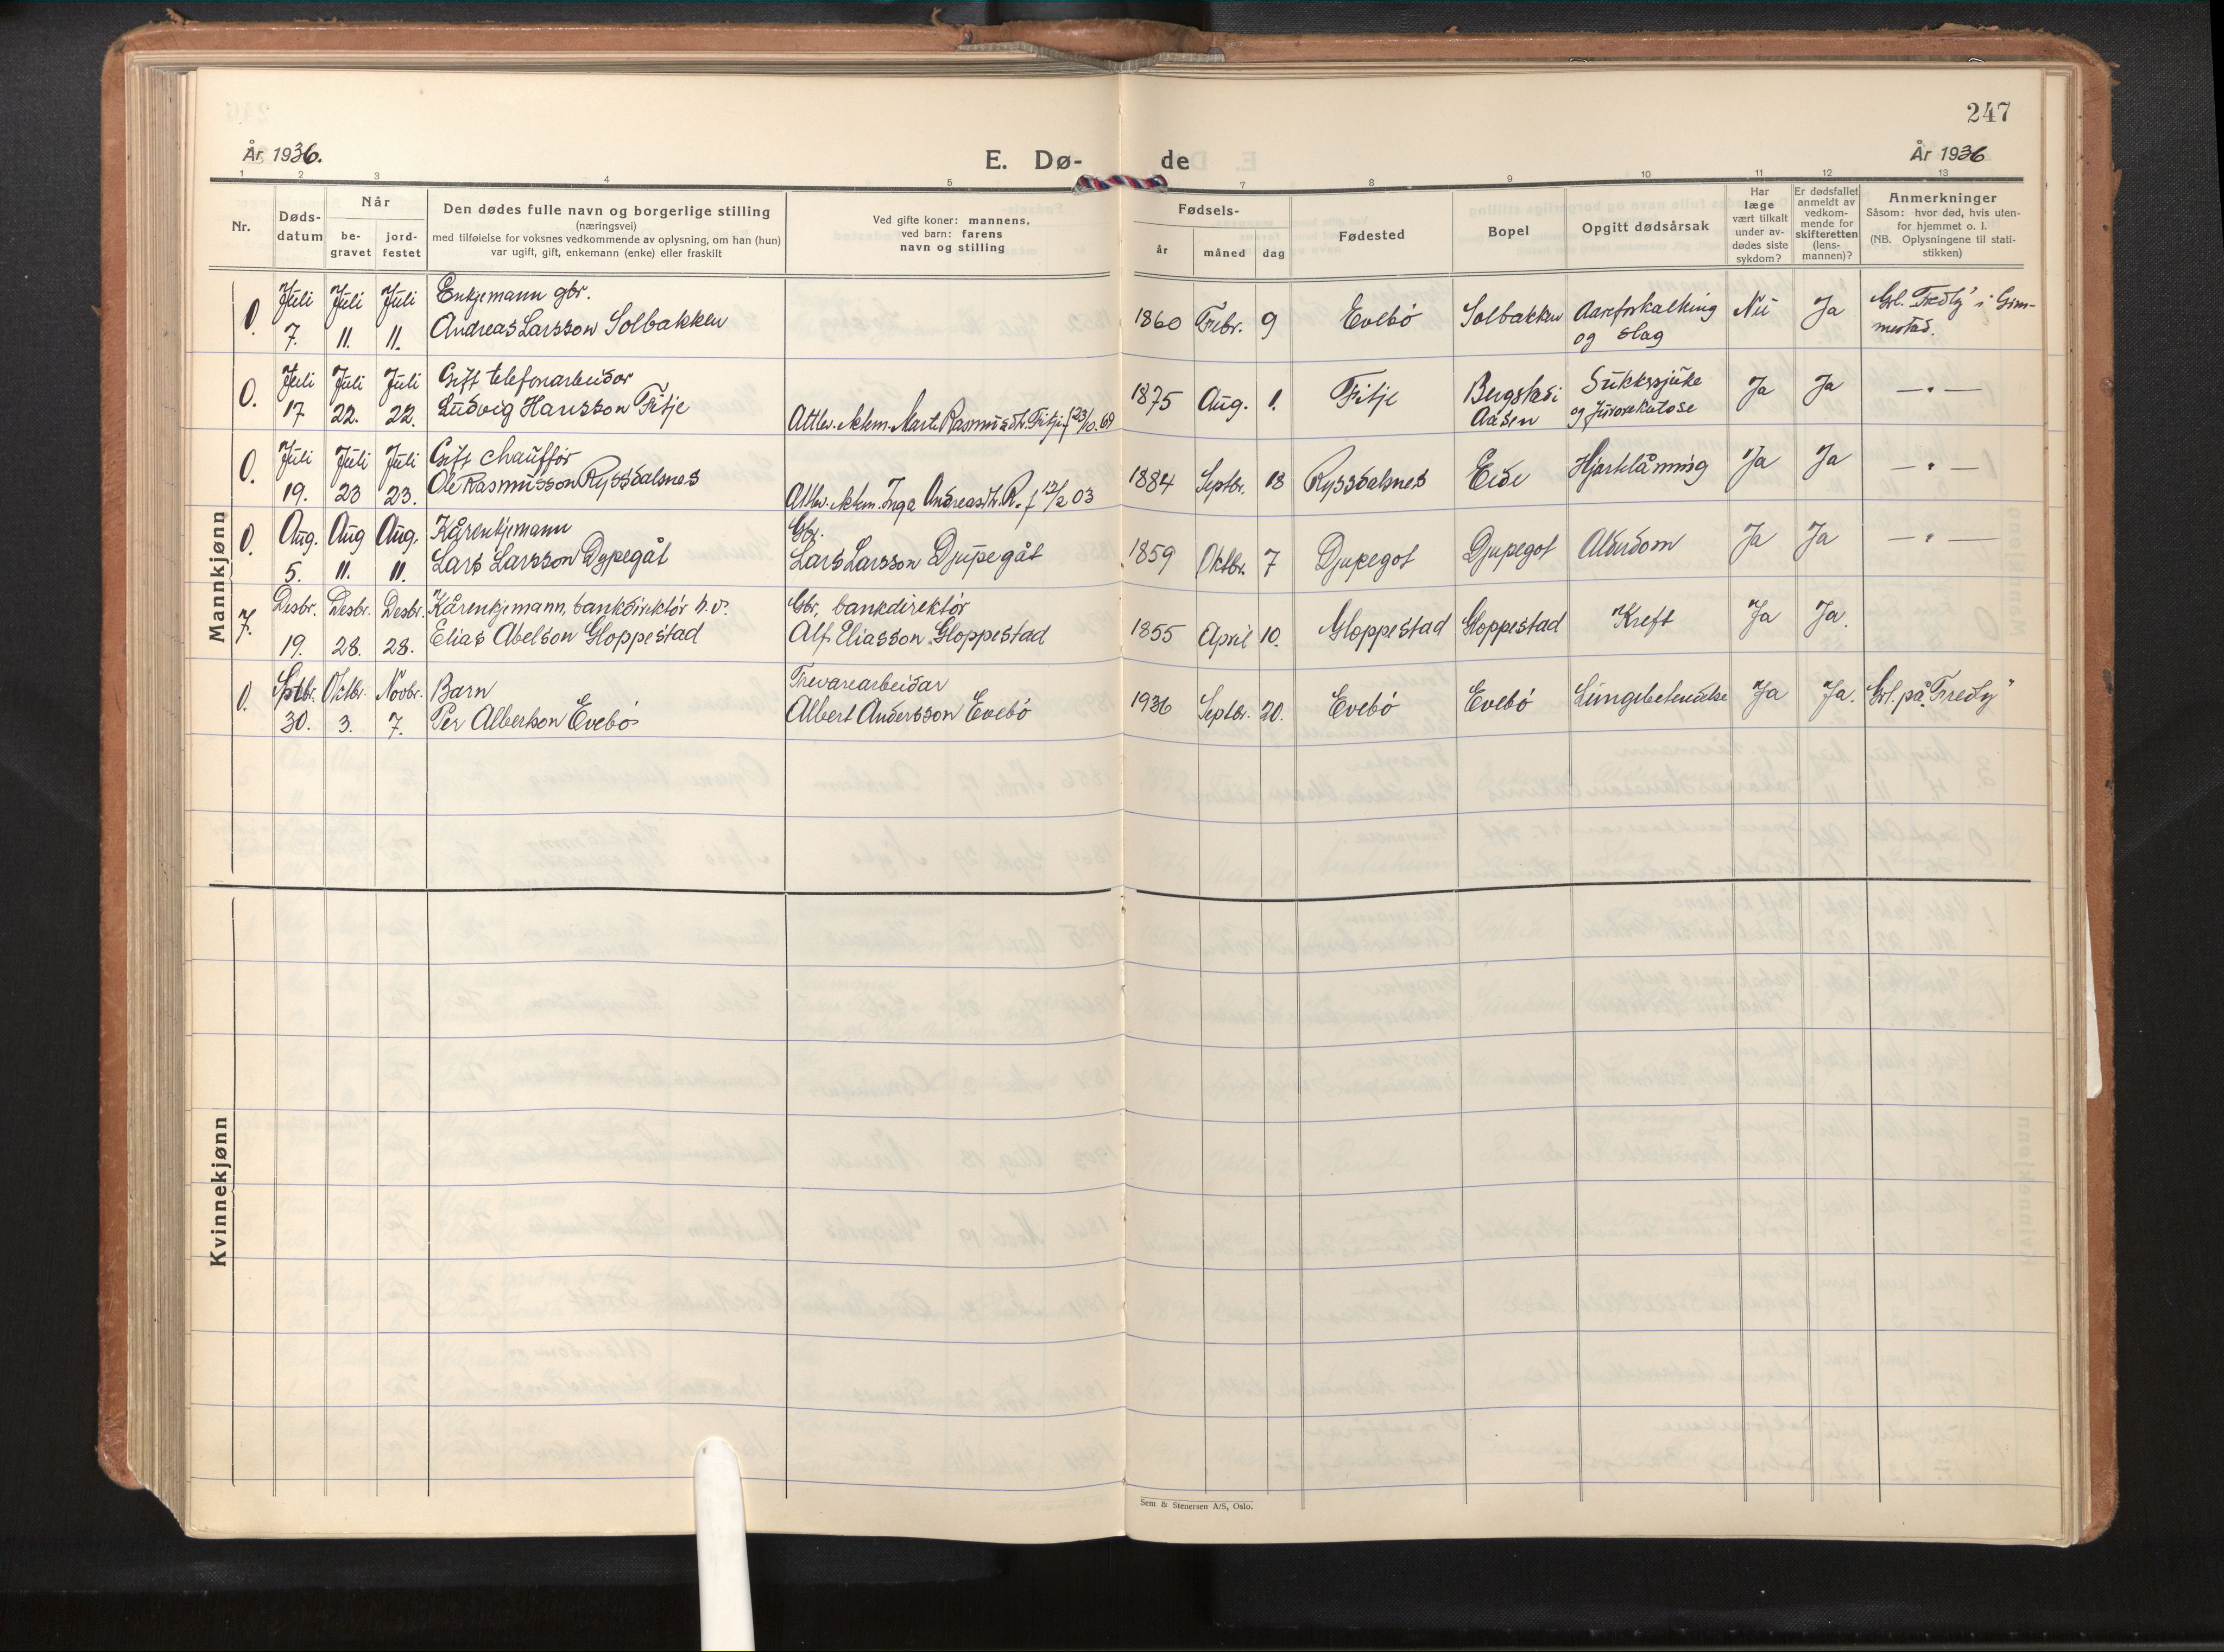 247
År 1936.
E. Dø- de
År 1936
1 2 3 4 5 7 8 9 10 11 12 13
Nr.
Døds-
datum
Når
be-
gravet
jord-
festet
Den dødes fulle navn og borgerlige stilling
(næringsvei)
med tilføielse for voksnes vedkommende av oplysning, om han (hun)
var ugift, gift, enkemann (enke) eller fraskilt
Ved gifte koner: mannens,
ved barn: farens
navn og stilling
Fødsels-
år måned dag
Fødested
Bopel
Opgitt dødsårsak
Har
læge
vært tilkalt
under av-
dødes siste
sykdom?
Er dødsfallet
anmeldt av
vedkom-
mende for
skifteretten
(lens-
mannen)?
Anmerkninger
Såsom: hvor død, hvis uten-
for hjemmet o. l.
(NB. Oplysningene til stati-
stikken)
Mannkjønn
0. Juli Juli Juli Enkjemann gbr. 1860 Febr. 9 Evebø Solbakken Aareforkalking Nei Ja Grl. "Fredly" i Gim-
7. 11. 11. Andreas Larsson Solbakken og slag mestad.
0. Juli Juli Juli Gift telefonarbeidar 1875 Aug. 1. Fitje Bergstadi Sukkersjuke Ja Ja — " —
17 22. 22. Ludvig Hansson Fitje Attlev. ektem. Marte Rasmusdtr. Fitje f 23/10. 69 Aasen og furorekulose
0. Juli Juli Juli Gift chauffør 1884 Septbr. 18 Ryssdalsnes Eide Hjartelåming Ja Ja — " —
19. 23 23. Ole Rasmusson Ryssdalsnes Attlev. ektem. Inga Andreasdtr. R. f 12/2 03
0. Aug. Aug Aug. Kårenkjemann Gbr. 1859 Oktbr. 7 Djupegot Djupegot Alderdom Ja Ja — " —
5. 11. 11. Lars Larsson Dypegåt Lars Larsson Djupegåt
7. Desbr. Desbr. Desbr. Kårenkjemann, bankdirektør h.v. Gbr, bankdirektør 1855 April 10. Gloppestad Gloppestad Kreft Ja Ja.
19. 28. 28. Elias Abelson Gloppestad Alf Eliasson Gloppestad
0. Septbr. Oktbr. Novbr. Barn Trevarearbeidar 1936 Septbr. 20. Evebø Evebø Lungebetendelse Ja Ja. Grl. på "Fredly"
30. 3. 7. Per Albertson Evebø Albert Andersson Evebø
Kvinnekjønn
Sem & Stenersen A/S, Oslo.